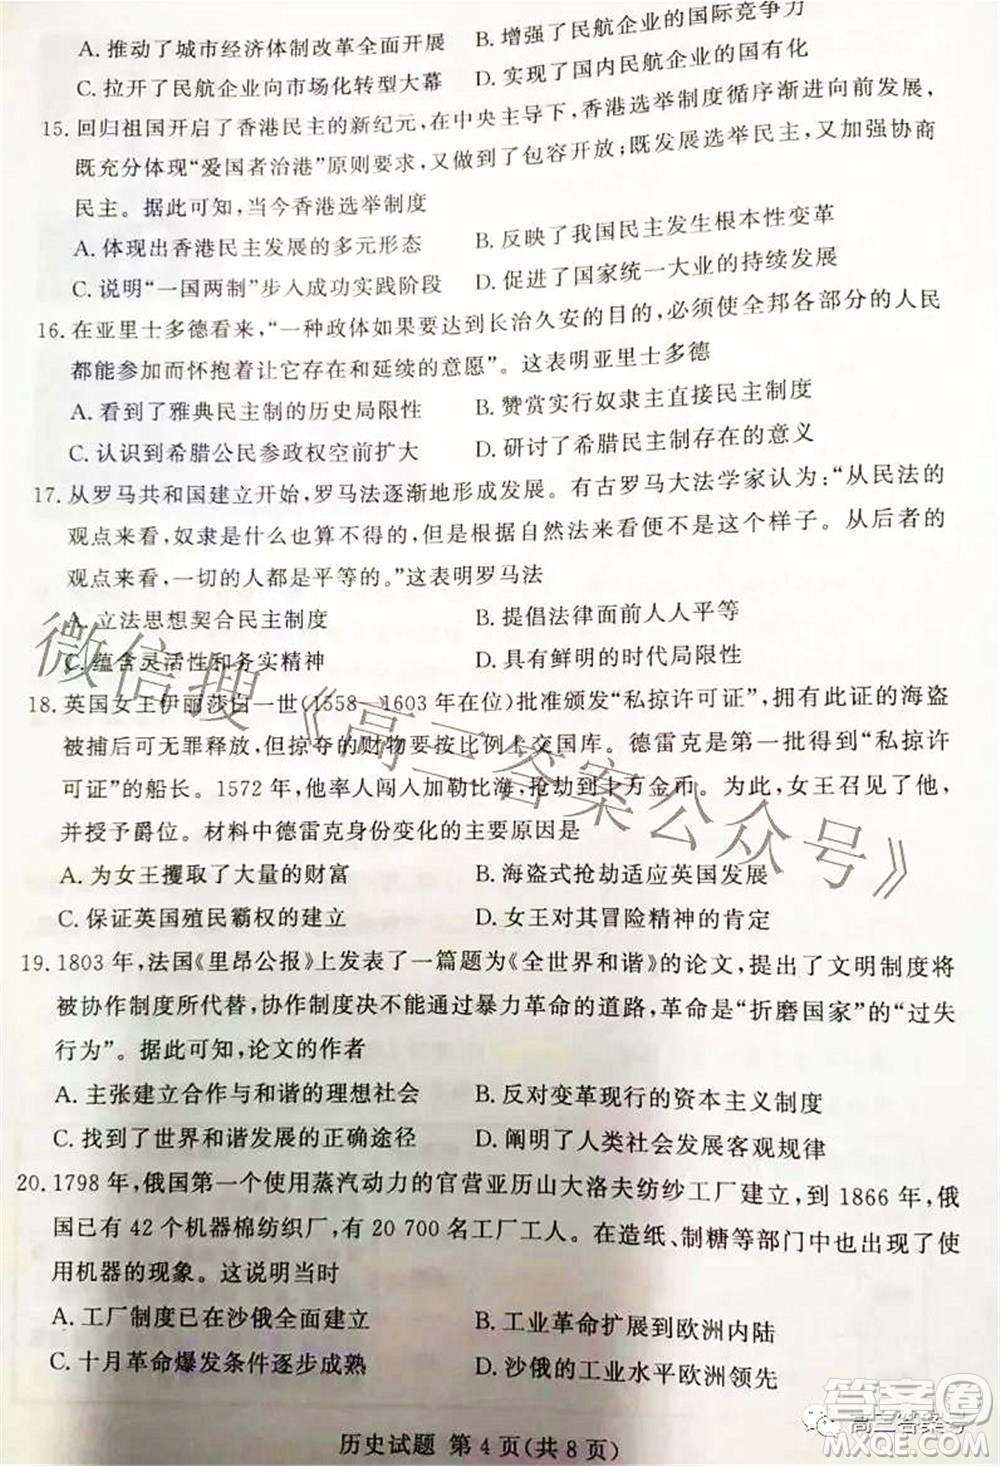 A. 推动了城市经济体制改革全面开展
B. 增强了民航企业的国际竞争力
C. 拉开了民航企业向市场化转型大幕
D. 实现了国内民航企业的国有化
15. 回归祖国开启了香港民主的新纪元，在中央主导下，香港选举制度循序渐进向前发展，
既充分体现“爱国者治港”原则要求，又做到了包容开放；既发展选举民主，又加强协商
民主。据此可知，当今香港选举制度
A. 体现出香港民主发展的多元形态
B. 反映了我国民主发生根本性变革
C. 说明“一国两制”步入成功实践阶段
D. 促进了国家统一大业的持续发展
16. 在亚里士多德看来，“一种政体如果要达到长治久安的目的，必须使全邦各部分的人民
都能参加而怀抱着让它存在和延续的意愿”。这表明亚里士多德
A. 看到了雅典民主制的历史局限性
B. 赞赏实行奴隶主直接民主制
C. 认识到希腊公民参政权空前扩大
D. 研讨了希腊民主制存在的意义
17. 从罗马共和国建立开始，罗马法逐渐地形成发展。有古罗马大法学家认为：“从民法的
观点来看，奴隶是什么也算不上的，但是根据自然法来看便不是这个样子。从后者的
观点来看，一切的人都是平等的。”这表明罗马法
A. 立法思想契合民主制度
B. 提倡法律面前人人平等
C. 蕴含灵活性和务实精神
D. 具有鲜明的时代局限性
18. 英国女王伊丽莎白一世(1558—1603年在位)批准颁发“私掠许可证”，拥有此证的海盗
被捕后可无罪释放，但掠夺的财物要按比例上交国库。德雷克是第一批得到“私掠许
可证”的船长。1572年，他率人闯入加勒比海，抢劫到上万金币。女王召见了他，
并授予爵位。材料中德雷克身份变化的主要原因是
A. 为女王攫取了大量的财富
B. 海盗式抢劫适应英国发展
C. 保证英国殖民霸权的建立
D. 女王对其冒险精神的肯定
19. 1803年，法国《里昂公报》上发表了一篇题为《全世界和谐》的论文，提出了文明制度将
被协作制度所代替，协作制度决不能通过暴力革命的道路，革命是“折磨国家”的“过失
行为”。据此可知，论文的作者
A. 主张建立合作与和谐的理想社会
B. 反对变革现行的资本主义制度
C. 找到了世界和谐发展的正确途径
D. 阐明了人类社会发展客观规律
20. 1798年，俄国第一个使用蒸汽动力的官营亚历山大洛夫纺纱工厂建立，到1866年，俄
国已有42个机器棉纺织厂，有20 700名工厂工人。在造纸、制糖等部门中也出现了使
用机器的现象。这说明当时
A. 工厂制度已在沙俄全面建立
B. 工业革命扩展到欧洲内陆
C. 十月革命爆发条件逐步成熟
D. 沙俄的工业水平欧洲领先
历史试题 第4页(共8页)
微信搜《高三答案公众号》
高三答案号
答案圈
MXQE.COM